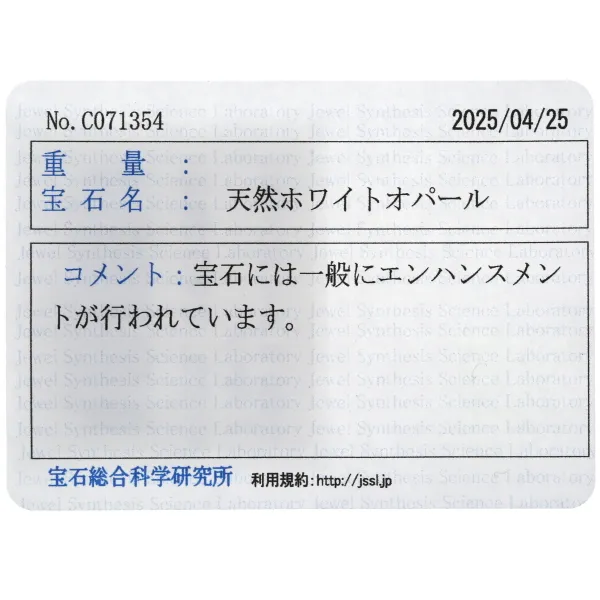 No.C071354 2025/04/25
重 量 :
宝 石 名 : 天然ホワイトオパール
コメント:宝石には一般にエンハンスメン
トが行われています。
宝石総合科学研究所 利用規約:http://jssl.jp
Jewel Synthesis Science Laboratory